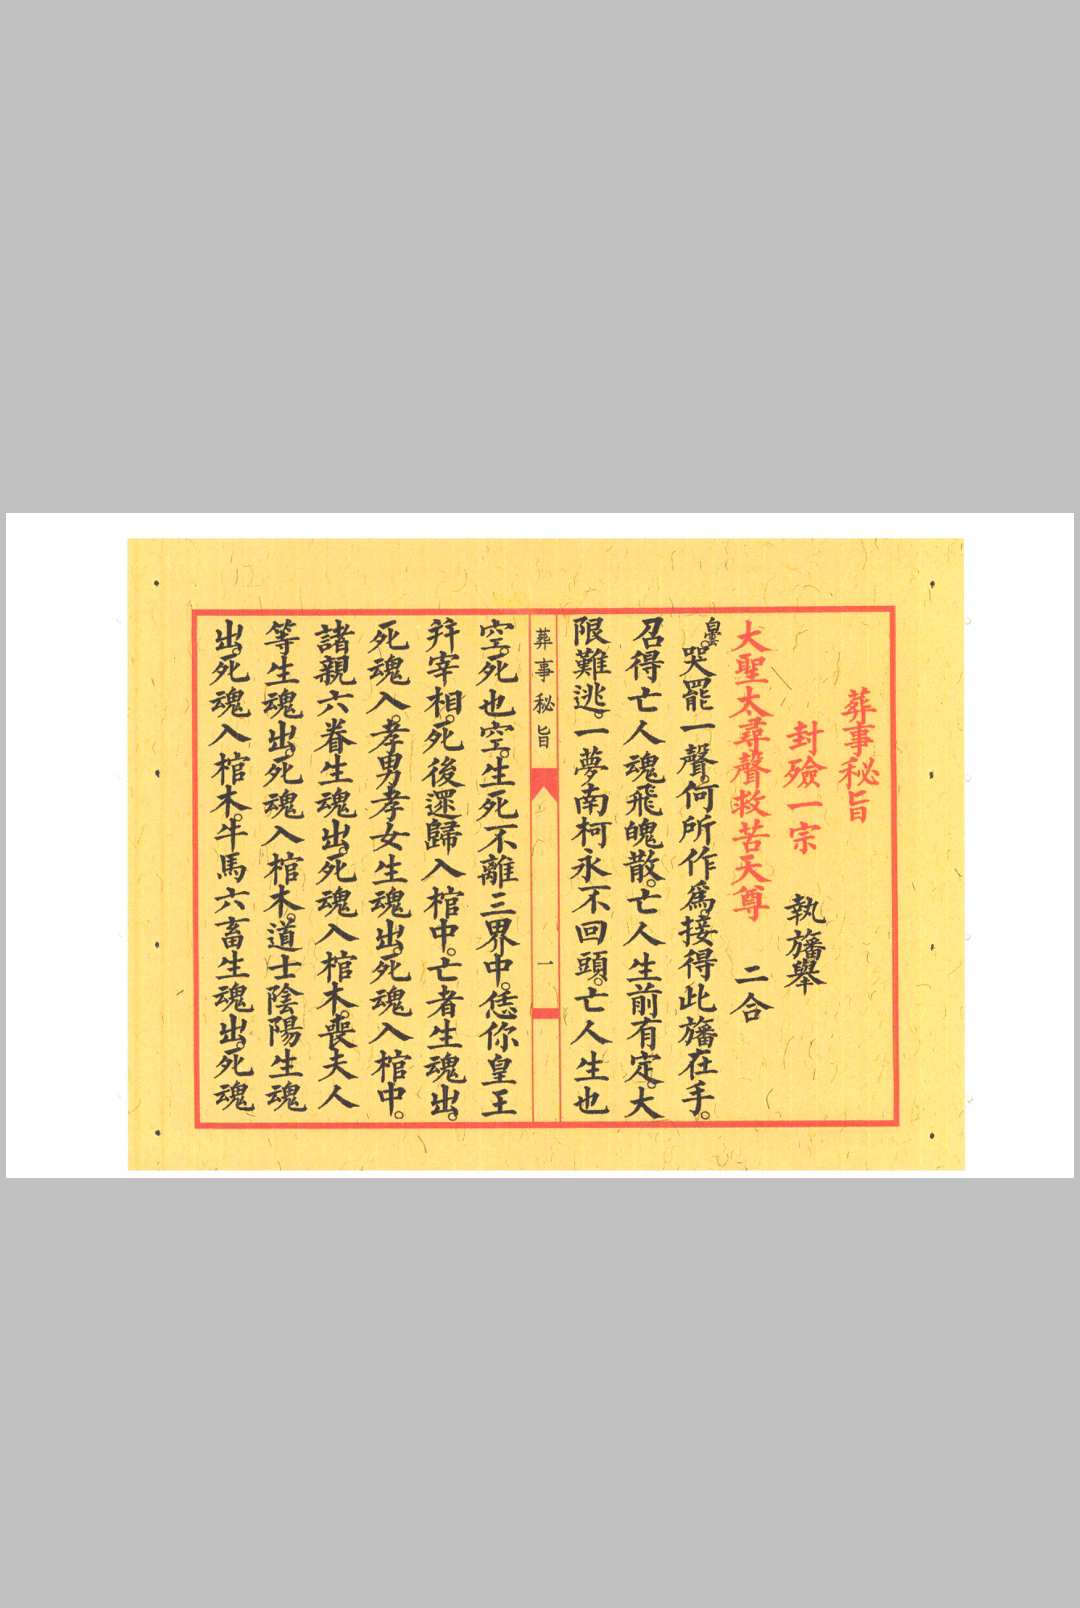 葬事秘旨
封殮一宗 執旛舉
大聖太尋聲救苦天尊 二合
哭罷一聲。何所作為。接得此旛在手。
召得亡人魂飛魄散。亡人生前有定。大
限難逃。一夢南柯永不回頭。亡人生也
葬事秘旨 一
空。死也空。生死不離三界中。恁你皇王
并宰相。死後還歸入棺中。亡者生魂出。
死魂入。孝男孝女生魂出。死魂入棺中。
諸親六眷生魂出。死魂入棺木。喪夫人
等生魂出。死魂入棺木。道士陰陽生魂
出。死魂入棺木。牛馬六畜生魂出。死魂